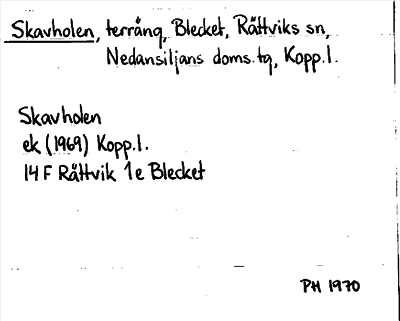 Skavholen, terräng, Blecket, Rättviks sn,
Nedansiljans doms.tg, Kopp.l.
Skavholen
ek (1969) Kopp.l.
14 F Rättvik 1e Blecket
PH 1970